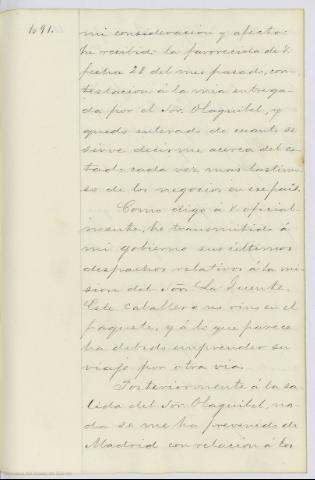 1091.
mi consideracion y afecto:
he recibido la favorecida de V.
fecha 28 del mes pasado, con-
testacion á la mia entrega-
da por el Sor. Olaguibel, y
quedo enterado de cuanto se
sirve decirme acerca del es-
tado cada vez mas lastimo-
so de los negocios en ese pais.
Como digo á V. oficial-
mente, he transmitido á
mi gobierno sus últimos
despachos relativos á la mi-
sion del Sor. La Fuente.
Este caballero no vino en el
paquete, y á lo que parece
ha debido emprender su
viaje por otra via.
Posteriormente á la sa-
lida del Sor. Olaguibel, na-
da se me ha prevenido de
Madrid con relacion á los